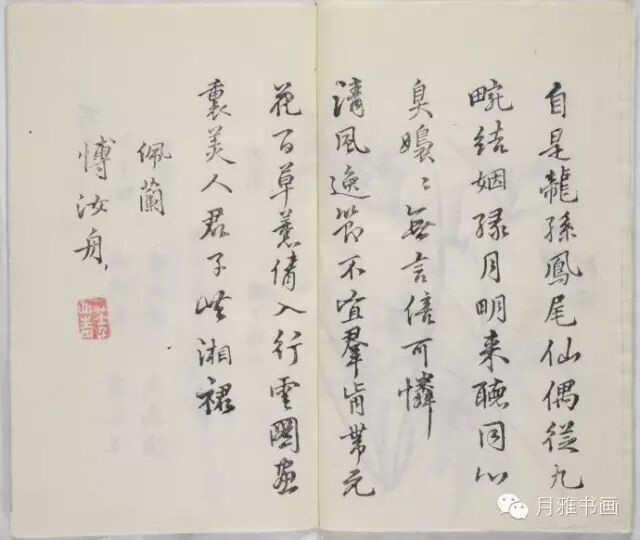 自是龍孫鳳尾仙偶從九
畹結姻緣月明来聽同心
臭嫋〻無言倍可憐
清風逸節不宜羣肯帶凡
花百草薰倩入行雲圖畫
裏美人君子湘裙
佩蘭
愽汝舟
月雅书画